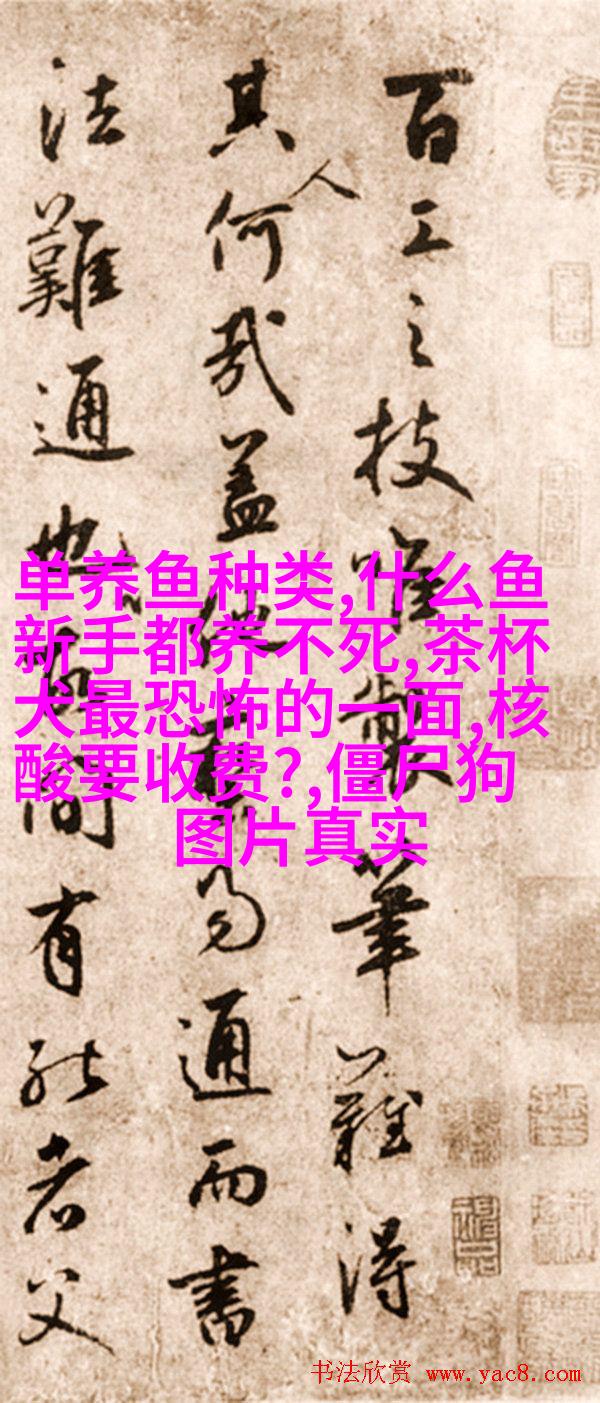 百工之技唯製筆難得
其人何哉蓋易通而書
法難通也間有能者父
单养鱼种类,什么鱼
新手都养不死,茶杯
犬最恐怖的一面,核
酸要收费?,僵尸狗
图片真实
书法欣赏 www.yac8.com